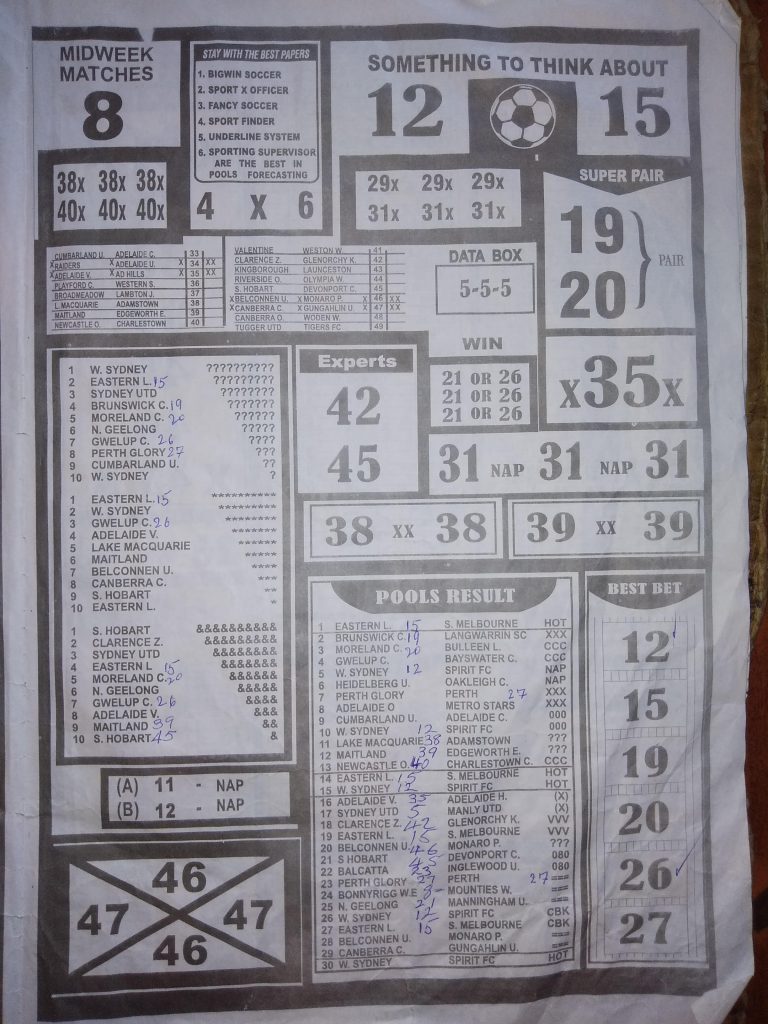 MIDWEEK
MATCHES
8
STAY WITH THE BEST PAPERS
1. BIGWIN SOCCER
2. SPORT X OFFICER
3. FANCY SOCCER
4. SPORT FINDER
5. UNDERLINE SYSTEM
6. SPORTING SUPERVISOR
ARE THE BEST IN
POOLS FORECASTING
4 X 6
SOMETHING TO THINK ABOUT
12 15
38x 38x 38x
40x 40x 40x
29x 29x 29x
31x 31x 31x
SUPER PAIR
19
20
PAIR
CUMBARLAND U. ADELAIDE C. 33
X RAIDERS X ADELAIDE U. X 34 XX
X ADELAIDE V. X AD HILLS X 35 XX
PLAYFORD C. WESTERN S. 36
BROADMEADOW LAMBTON J. 37
L. MACQUARIE ADAMSTOWN 38
MAITLAND EDGEWORTH E. 39
NEWCASTLE O. CHARLESTOWN 40
VALENTINE WESTON W. 41
CLARENCE Z. GLENORCHY K. 42
KINGBOROUGH LAUNCESTON 43
RIVERSIDE O. OLYMPIA W. 44
S. HOBART DEVONPORT C. 45
X BELCONNEN U. X MONARO P. X 46 XX
X CANBERRA C. X GUNGAHLIN U. X 47 XX
CANBERRA O. WODEN W. 48
TUGGER UTD TIGERS FC 49
DATA BOX
5-5-5
WIN
21 OR 26
21 OR 26
21 OR 26
X35X
1 W. SYDNEY ??????????
2 EASTERN L. 15 ?????????
3 SYDNEY UTD ????????
4 BRUNSWICK C. 19 ???????
5 MORELAND C. 20 ??????
6 N. GEELONG ?????
7 GWELUP C. 26 ????
8 PERTH GLORY 27 ???
9 CUMBARLAND U. ??
10 W. SYDNEY ?
1 EASTERN L. 15 **********
2 W. SYDNEY *********
3 GWELUP C. 26 ********
4 ADELAIDE V. *******
5 LAKE MACQUARIE ******
6 MAITLAND *****
7 BELCONNEN U. ****
8 CANBERRA C. ***
9 S. HOBART **
10 EASTERN L. *
1 S. HOBART &&&&&&&&&&
2 CLARENCE Z. &&&&&&&&&
3 SYDNEY UTD &&&&&&&&
4 EASTERN L 15 &&&&&&&
5 MORELAND C. 20 &&&&&&
6 N. GEELONG &&&&&
7 GWELUP C. 26 &&&&
8 ADELAIDE V. &&&
9 MAITLAND 39 &&
10 S. HOBART 45 &
Experts
42
45
31 NAP 31 NAP 31
38 xx 38
39 xx 39
POOLS RESULT
1 EASTERN L. 15 S. MELBOURNE HOT
2 BRUNSWICK C. 19 LANGWARRIN SC XXX
3 MORELAND C. 20 BULLEEN L. CCC
4 GWELUP C. BAYSWATER C. CCC
5 W. SYDNEY 12 SPIRIT FC NAP
6 HEIDELBERG U. OAKLEIGH C. NAP
7 PERTH GLORY PERTH 27 XXX
8 ADELAIDE O METRO STARS XXX
9 CUMBARLAND U. ADELAIDE C. 000
10 W. SYDNEY 12 SPIRIT FC 000
11 LAKE MACQUARIE 38 ADAMSTOWN ???
12 MAITLAND 39 EDGEWORTH E. ???
13 NEWCASTLE O. 40 CHARLESTOWN C. CCC
14 EASTERN L. 15 S. MELBOURNE HOT
15 W. SYDNEY 12 SPIRIT FC HOT
16 ADELAIDE V. 35 ADELAIDE H. (X)
17 SYDNEY UTD 5 MANLY UTD (X)
18 CLARENCE Z. 42 GLENORCHY K. VVV
19 EASTERN L. 15 S. MELBOURNE VVV
20 BELCONNEN U. 46 MONARO P. ???
21 S HOBART 45 DEVONPORT C. 080
22 BALCATTA 23 INGLEWOOD U. 080
23 PERTH GLORY 27 PERTH 27 ===
24 BONNYRIGG W.E 3 MOUNTIES W. ===
25 N. GEELONG 21 MANNINGHAM U. ===
26 W. SYDNEY 12 SPIRIT FC CBK
27 EASTERN L. 15 S. MELBOURNE CBK
28 BELCONNEN U. MONARO P. ===
29 CANBERRA C. GUNGAHLIN U. ===
30 W. SYDNEY SPIRIT FC HOT
BEST BET
12
15
19
20
26
27
(A) 11 - NAP
(B) 12 - NAP
46
47 47
46